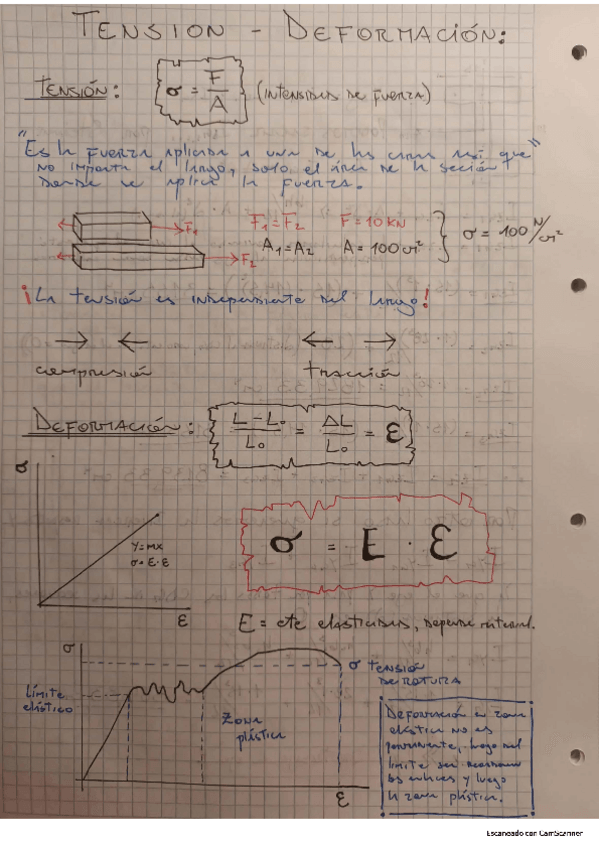 TENSION - DEFORMACIÓN:
TENSIÓN: σ = F/A (INTENSIDAD DE FUERZA)
"Es la fuerza aplicada a una de las caras así que"
no importa el largo, solo el área de la sección
donde se aplica la fuerza.
F₁ F₁=F₂ F=10 kN
A₁=A₂ A=100 cm² σ = 100 N/cm²
F₂
¡La tensión es independiente del largo!
compresión tracción
DEFORMACIÓN: L-L₀/L₀ = ΔL/L₀ = ε
σ
Y=mx
σ=E·ε
ε
σ = E · ε
E = cte elasticidad, depende material.
σ
σ TENSIÓN
DE ROTURA
Límite
elástico
Zona
plástica
ε
Deformación en zona
elástica no es
permanente, luego del
límite se
los enlaces y luego
la zona plástica.
Escaneado con CamScanner